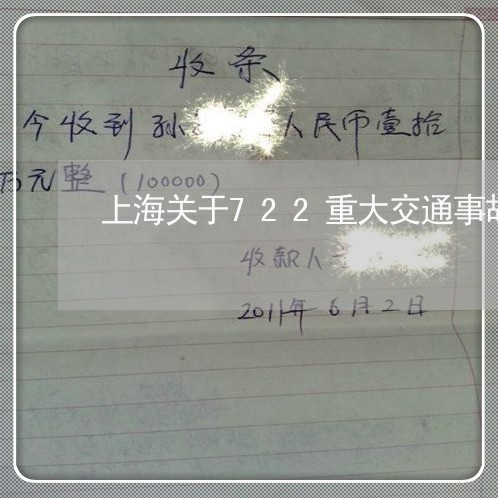 收条
今收到孙 人民币壹拾
万元整(100000)
上海关于722重大交通事故
收款人
2011年6月2日